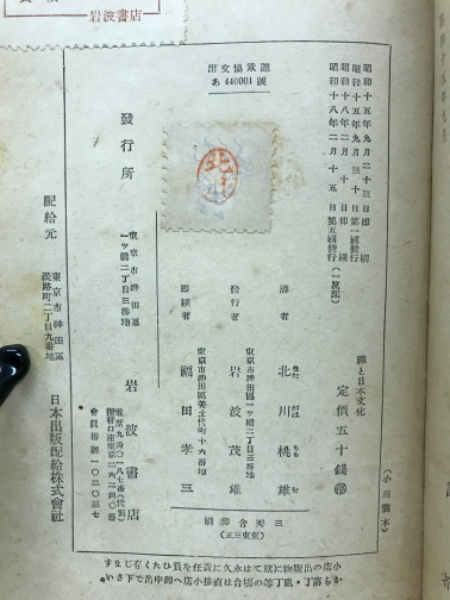 岩波書店
出文協承認
あ 440001 號
昭和十五年九月二十三日印刷
昭和十五年九月三十日第一刷發行
昭和十八年二月十日印刷
昭和十八年二月十五日第五刷發行（一萬部）
禪と日本文化
定價五十錢
譯者 北川桃雄
東京市神田區一ツ橋二丁目三番地
發行者 岩波茂雄
東京市神田區美土代町十六番地
印刷者 福田孝三
三秀舍印刷
（東東三五）
（小川製本）
東京市神田區
一ツ橋二丁目三番地
發行所 岩波書店
會員番號一〇二〇三七
配給元
東京市神田區
淡路町二丁目九番地
日本出版配給株式會社
小店の出版物に就ては永久に責任を負ひたく存じます
から落丁・亂丁等の場合は直接小店へ御申出で下さい